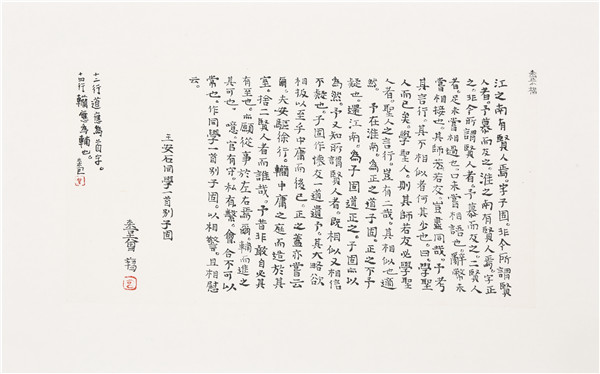 江之南有賢人焉。字子固。非今所謂賢
人者。予慕而友之。淮之南有賢人焉。字正
之。非今所謂賢人者。予慕而友之。二賢人
者。足未嘗相過也。口未嘗相語也。辭幣未
嘗相接也。其師若友。豈盡同哉。予考
其言行。其不相似者何其少也。曰。學聖
人而已矣。學聖人。則其師若友必學聖
人者。聖人之言行。豈有二哉。其相似也適
然。予在淮南。為正之道子固。正之不予
疑也。還江南。為子固道正之。子固亦以
為然。予又知所謂賢人者。既相似又相信
不疑也。子固作懷友一道遺予。其大略欲
相扳以至乎中庸而後已。正之蓋亦嘗云
爾。夫安驅徐行。轥中庸之庭而造於其
室。捨二賢人者而誰哉。予昔非敢自必其
有至也。亦願從事於左右焉爾。輔而進之
其可也。噫。官有守。私有繫。會合不可以
常也。作同學一首別子固。以相警。且相慰
云。
王安石同學一首別子固
十二行道應為首字。
十四行轥應為輔也。